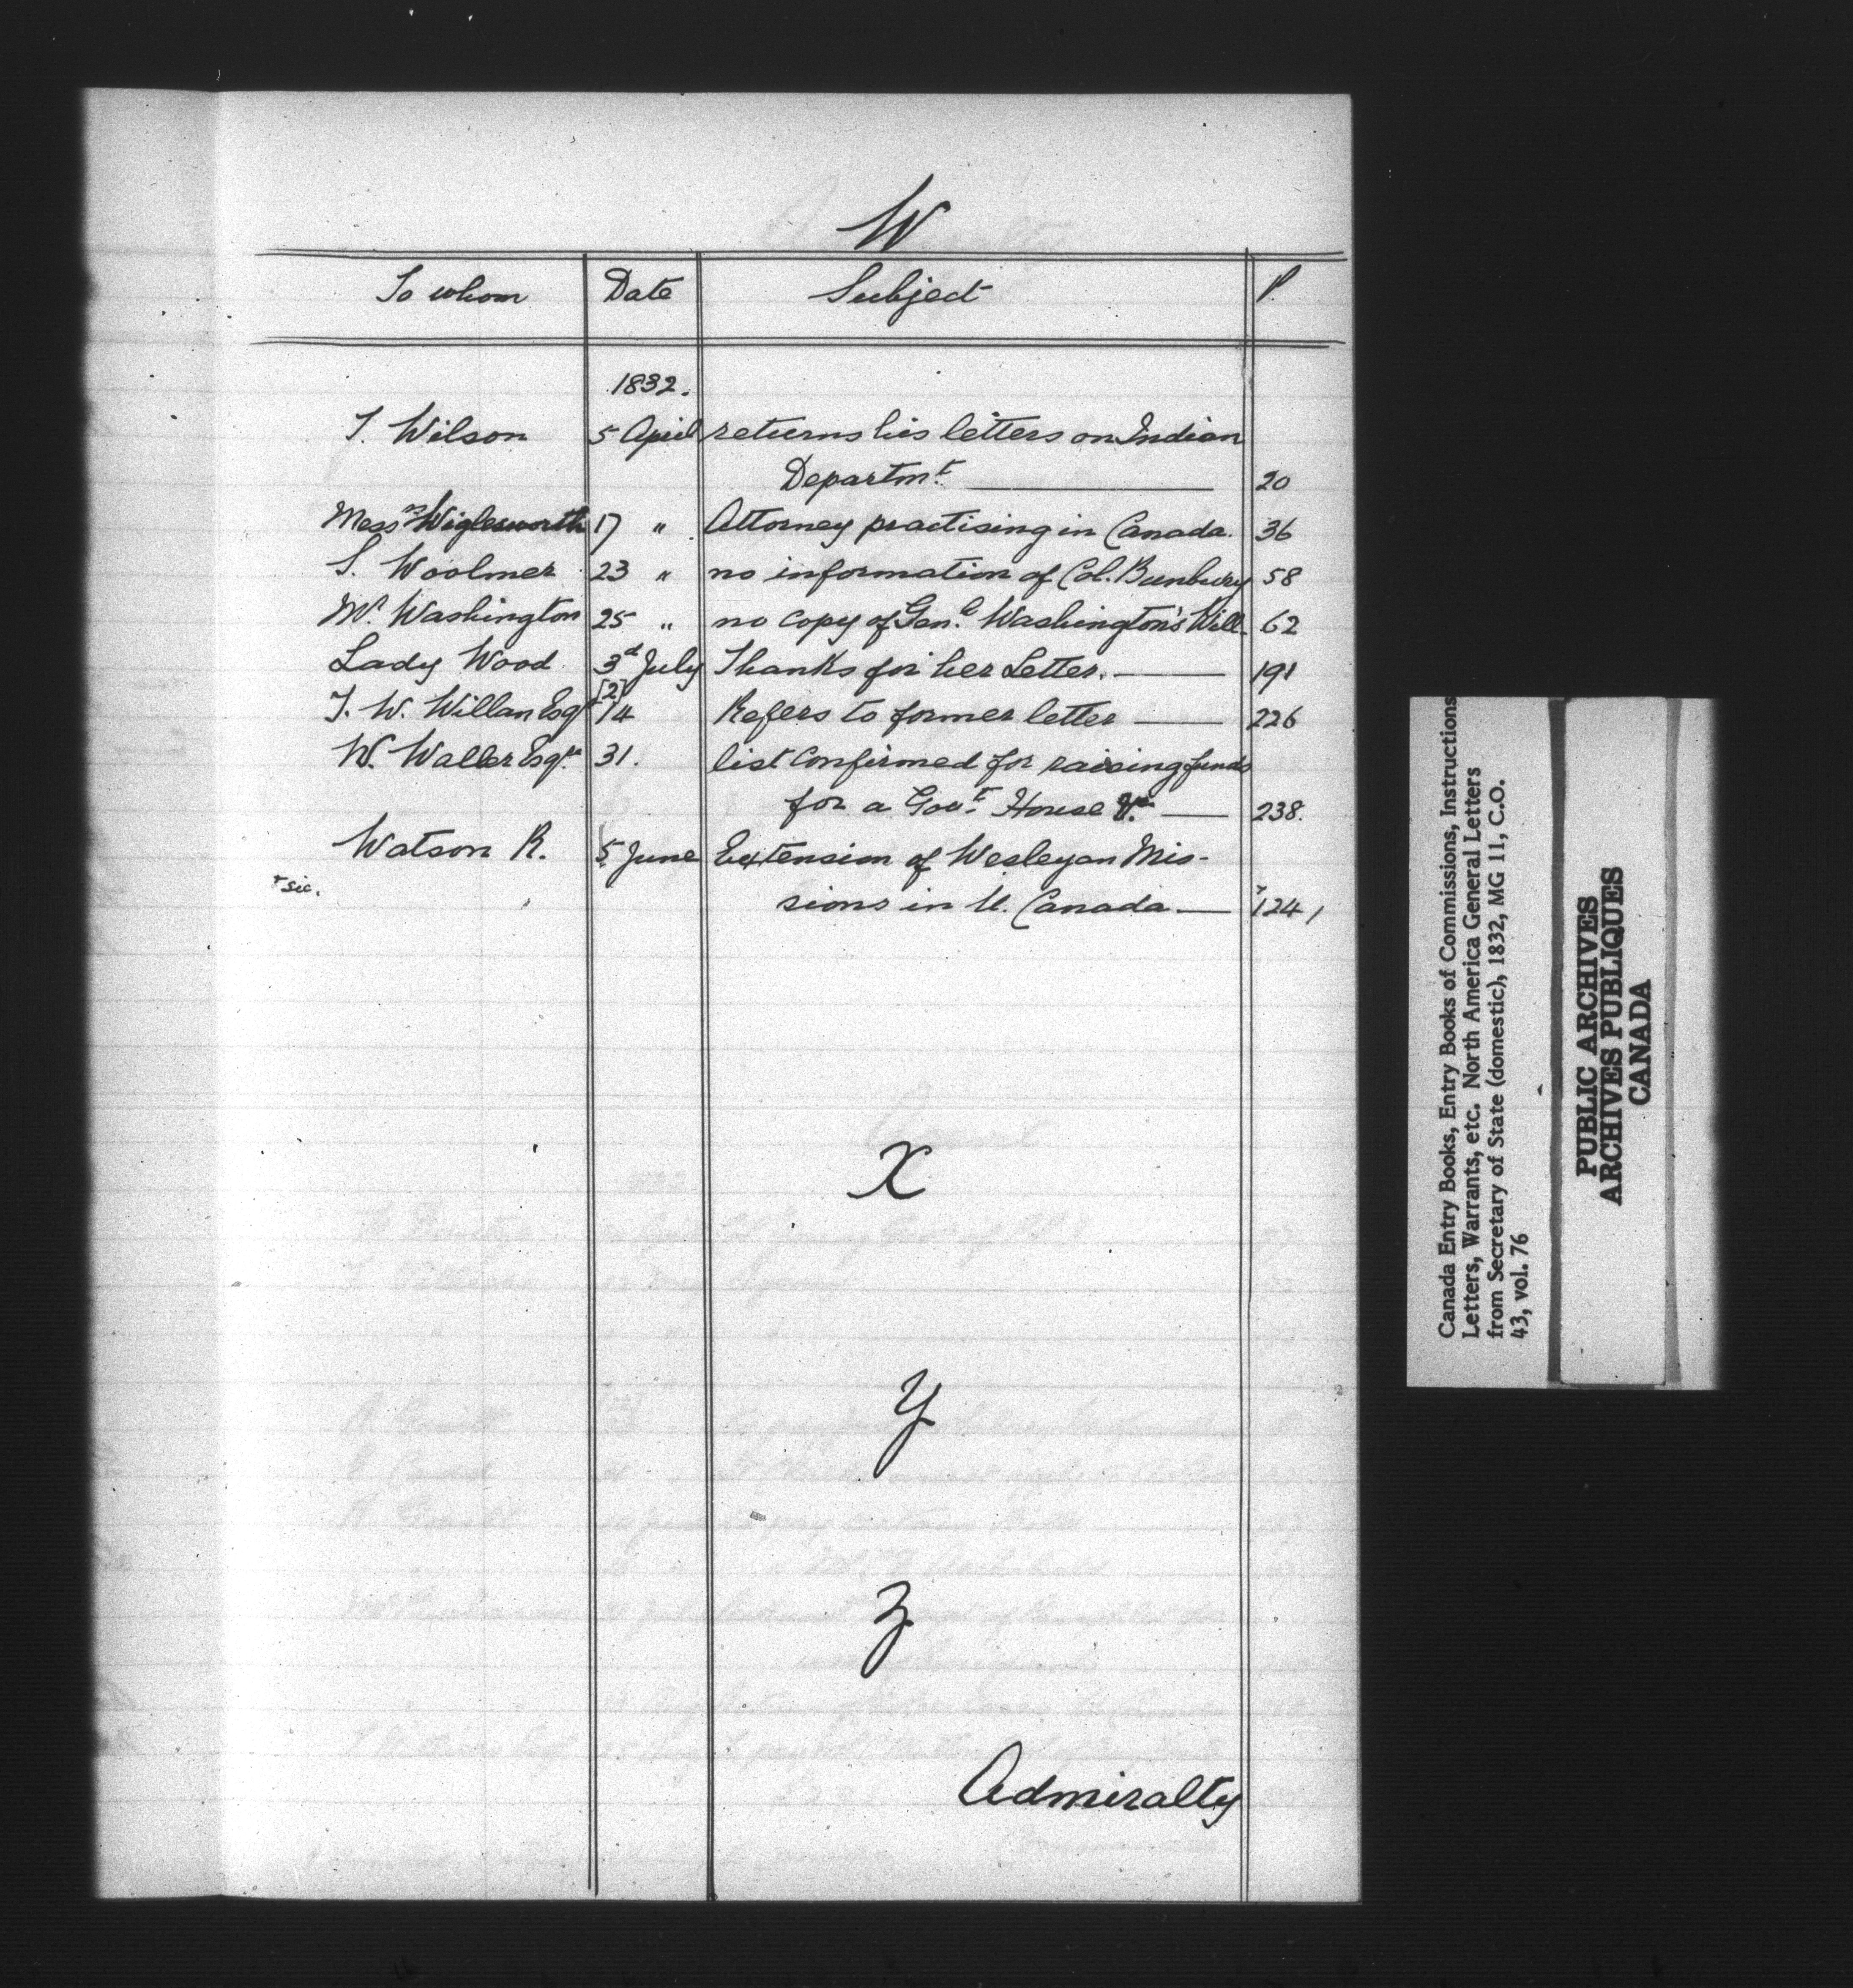 W
To whom Date Subject P.
1832.
T. Wilson 5 April returns his letters on Indian
Departmt. 20
Messrs Wiglesworth 17 " Attorney practising in Canada. 36
S. Woolmer 23 " no information of Col. Bunbury 58
Mr. Washington 25 " no copy of Genl. Washington's Will. 62
Lady Wood 3d July Thanks for her Letter. 191
[2]
T. W. Willan Esqr 14 Refers to former letter 226
W. Waller Esqre. 31. list confirmed for raising funds
for a Govt. House 238.
Watson R. 5 June Extension of Wesleyan Mis-
sic.
sions in U. Canada 124
X
Y
Z
Admiralty
Canada Entry Books, Entry Books of Commissions, Instructions
Letters, Warrants, etc. North America General Letters
from Secretary of State (domestic), 1832, MG 11, C.O.
43, vol. 76
PUBLIC ARCHIVES
ARCHIVES PUBLIQUES
CANADA